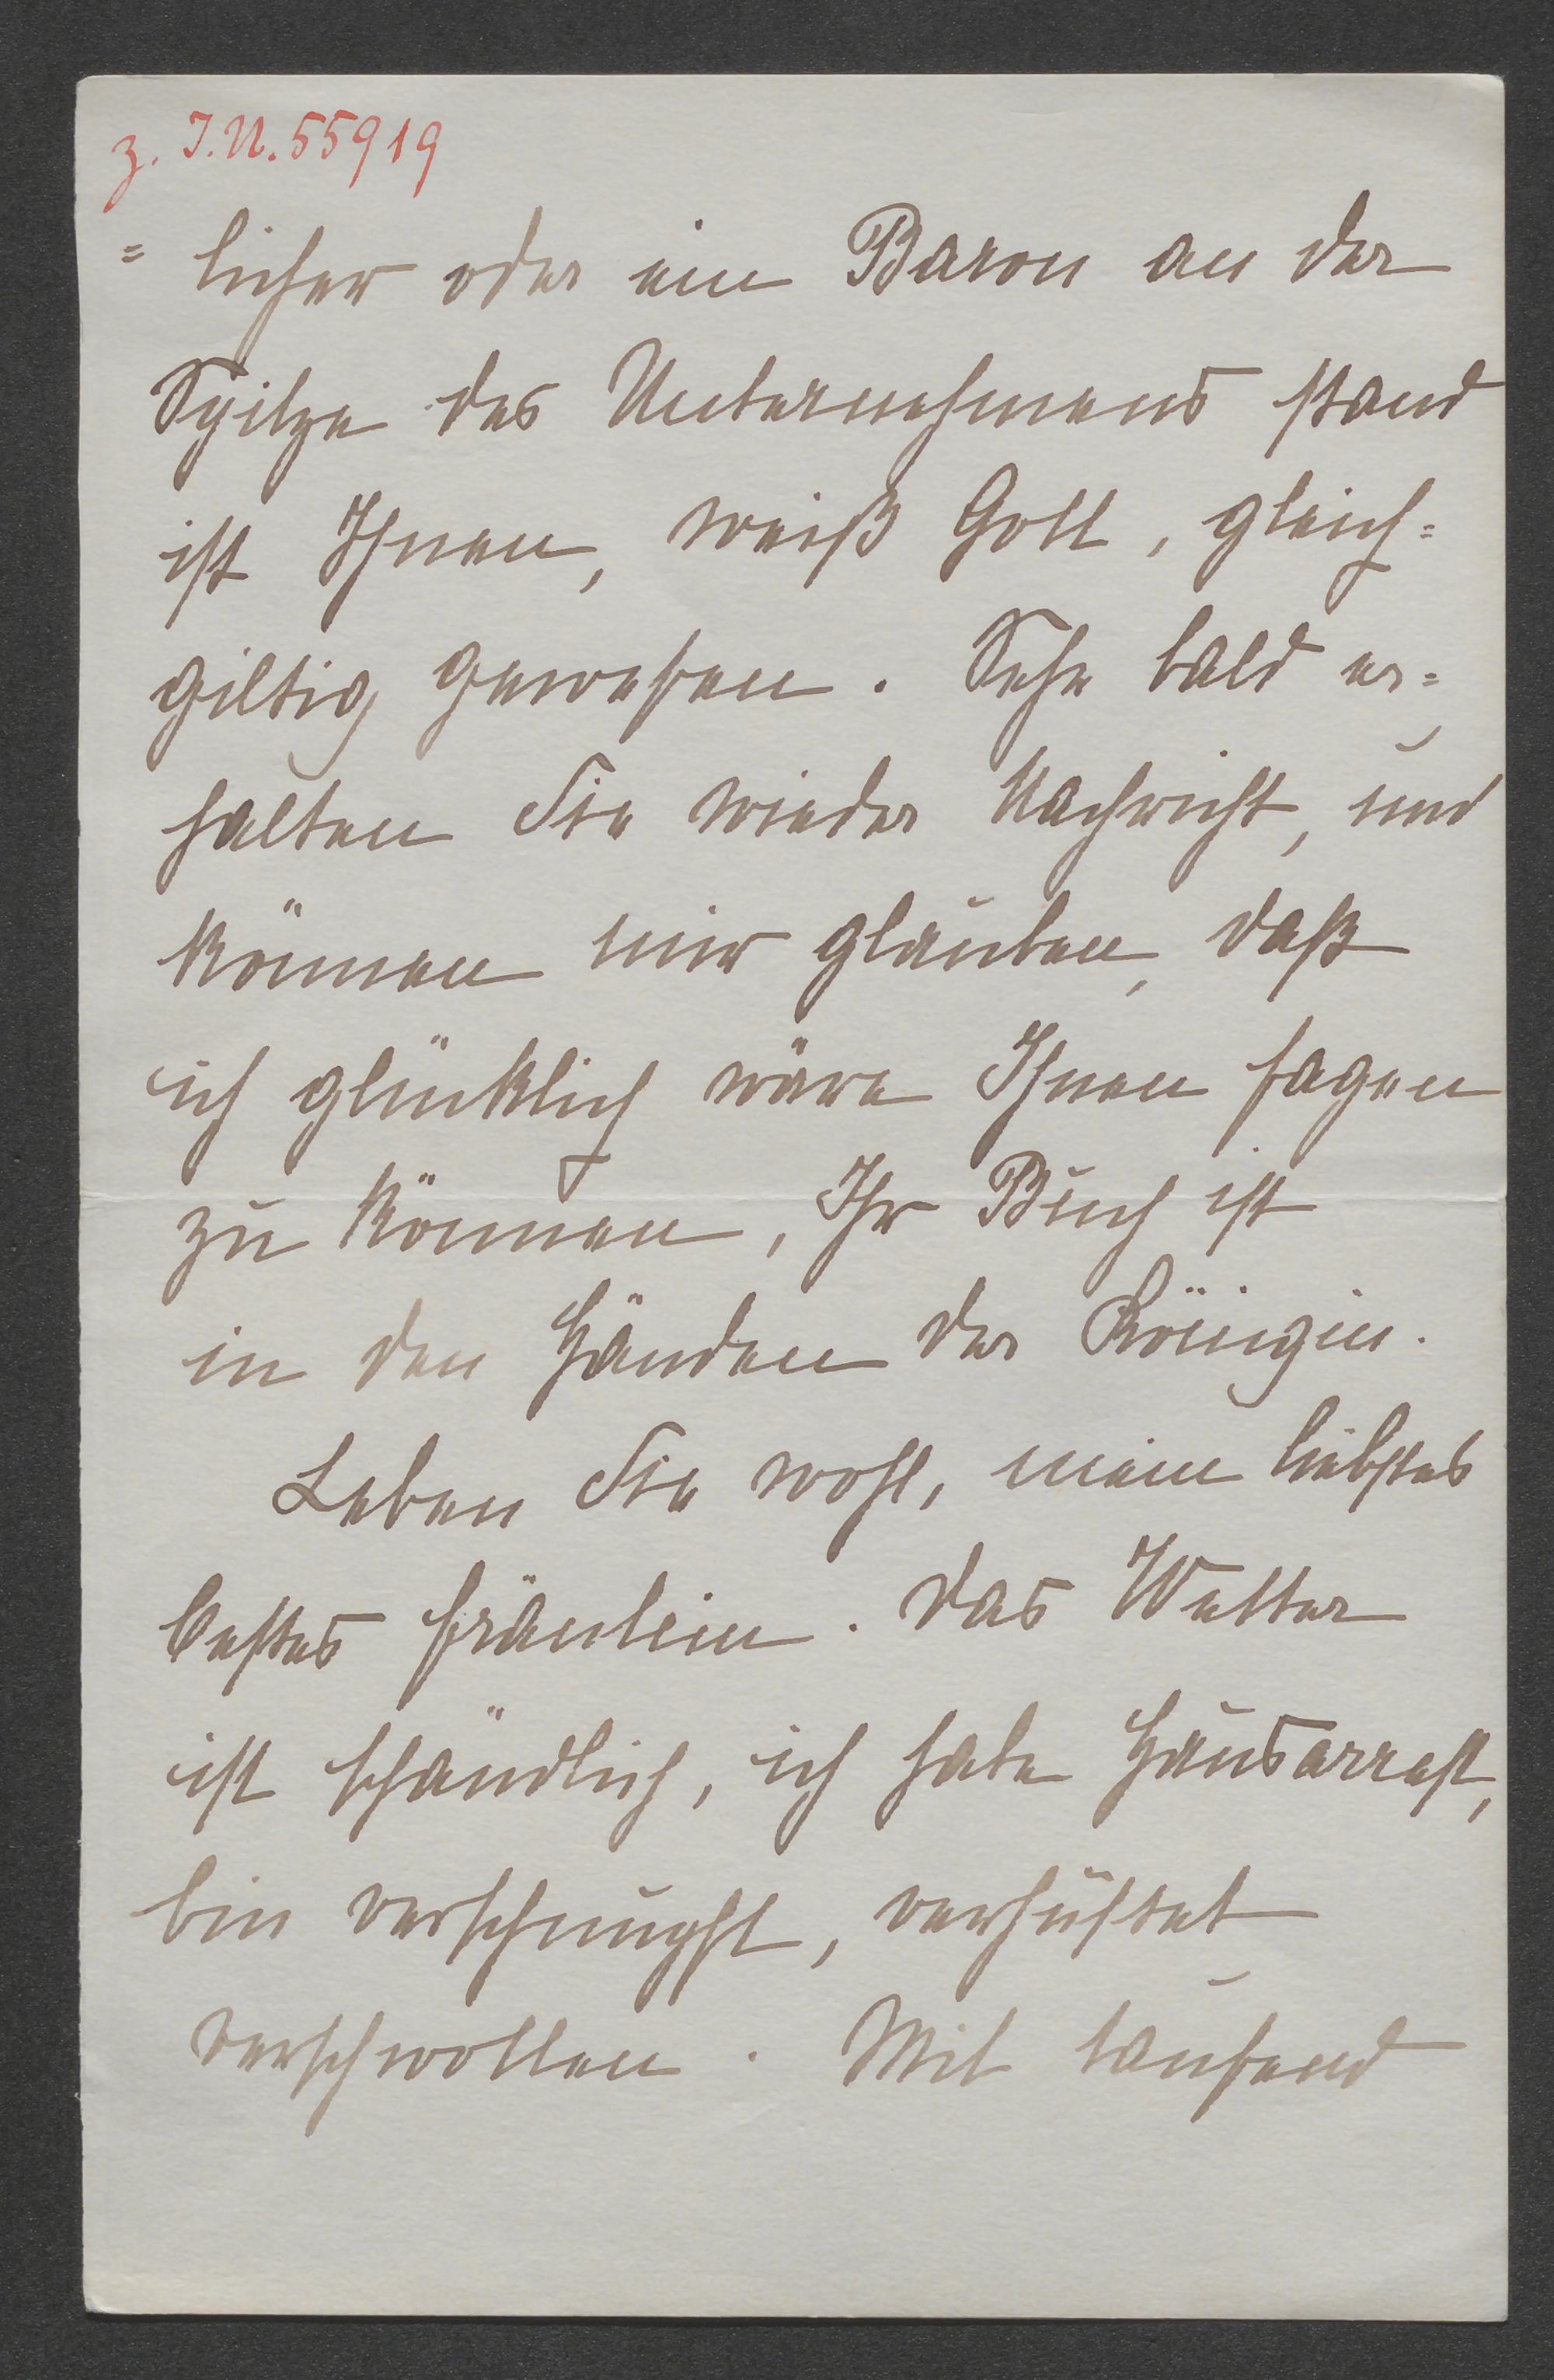 z. I.N. 55919
= licher oder ein Baron an der
Spitze des Unternehmens stand
ist Ihnen, weiß Gott, gleich=
giltig gewesen. Sehr bald er=
halten Sie wieder Nachricht, und
können mir glauben, daß
ich glücklich wäre Ihnen sagen
zu können, Ihr Buch ist
in den Händen der Königin.
Leben Sie wohl, mein liebstes
bestes Fräulein. Das Wetter
ist schändlich, ich habe Hausarrest,
bin verschnupft, verhustet
verschwollen. Mit tausend